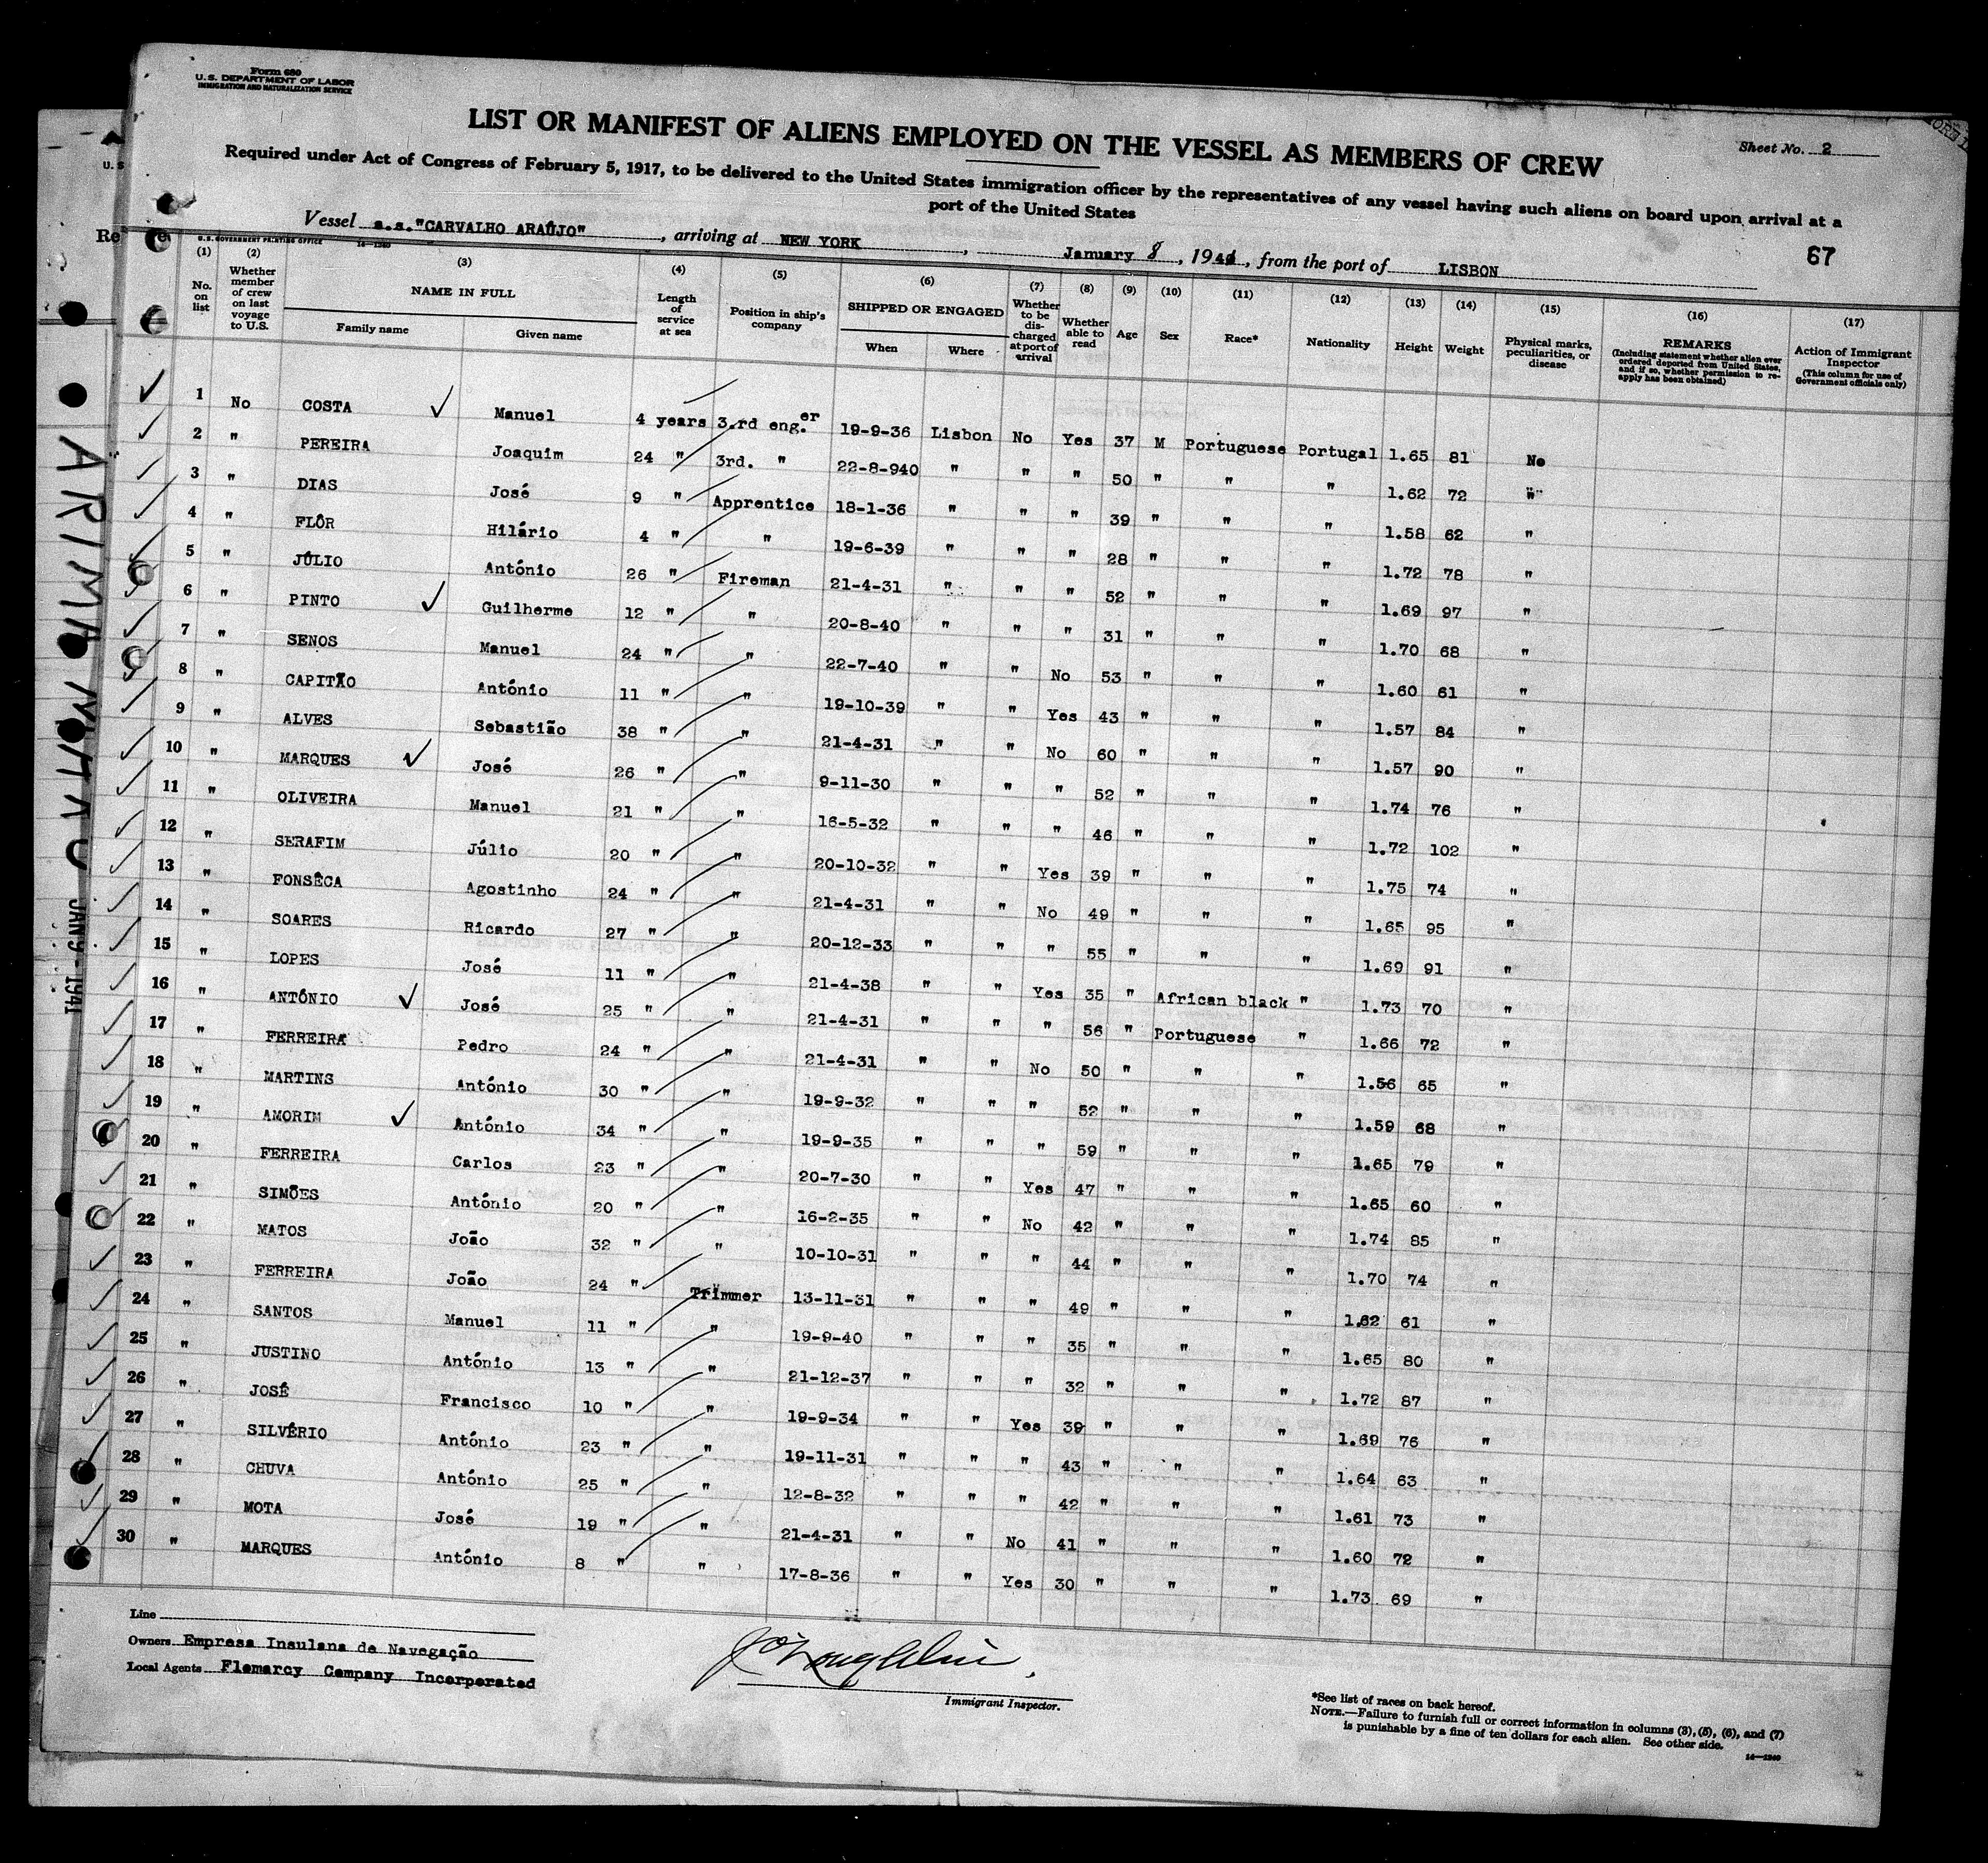 Form 680
U.S. DEPARTMENT OF LABOR
IMMIGRATION AND NATURALIZATION SERVICE
LIST OR MANIFEST OF ALIENS EMPLOYED ON THE VESSEL AS MEMBERS OF CREW
Sheet No. 2
Required under Act of Congress of February 5, 1917, to be delivered to the United States immigration officer by the representatives of any vessel having such aliens on board upon arrival at a
port of the United States
Vessel s.s."CARVALHO ARAÚJO", arriving at NEW YORK, January 8, 1941, from the port of LISBON
67
U.S. GOVERNMENT PRINTING OFFICE 14—1240
(1) No. on list (2) Whether member of crew on last voyage to U.S. (3) NAME IN FULL Family name Given name (4) Length of service at sea (5) Position in ship's company (6) SHIPPED OR ENGAGED When Where (7) Whether to be discharged at port of arrival (8) Whether able to read (9) Age (10) Sex (11) Race* (12) Nationality (13) Height (14) Weight (15) Physical marks, peculiarities, or disease (16) REMARKS (Including statement whether alien ever ordered deported from United States, and if so, whether permission to re-apply has been obtained) (17) Action of Immigrant Inspector (This column for use of Government officials only)
1 No COSTA Manuel 4 years 3.rd eng.er 19-9-36 Lisbon No Yes 37 M Portuguese Portugal 1.65 81 No
2 " PEREIRA Joaquim 24 " 3rd. " 22-8-940 " " " 50 " " " 1.62 72 "
3 " DIAS José 9 " Apprentice 18-1-36 " " " 39 " " " 1.58 62 "
4 " FLÔR Hilário 4 " " 19-6-39 " " " 28 " " " 1.72 78 "
5 " JÚLIO António 26 " Fireman 21-4-31 " " " 52 " " " 1.69 97 "
6 " PINTO Guilherme 12 " " 20-8-40 " " " 31 " " " 1.70 68 "
7 " SENOS Manuel 24 " " 22-7-40 " " No 53 " " " 1.60 61 "
8 " CAPITÃO António 11 " " 19-10-39 " " Yes 43 " " " 1.57 84 "
9 " ALVES Sebastião 38 " " 21-4-31 " " No 60 " " " 1.57 90 "
10 " MARQUES José 26 " " 9-11-30 " " " 52 " " " 1.74 76 "
11 " OLIVEIRA Manuel 21 " " 16-5-32 " " " 46 " " " 1.72 102 "
12 " SERAFIM Júlio 20 " " 20-10-32 " " Yes 39 " " " 1.75 74 "
13 " FONSÊCA Agostinho 24 " " 21-4-31 " " No 49 " " " 1.65 95 "
14 " SOARES Ricardo 27 " " 20-12-33 " " " 55 " " " 1.69 91 "
15 " LOPES José 11 " " 21-4-38 " " Yes 35 " African black " 1.73 70 "
16 " ANTÓNIO José 25 " " 21-4-31 " " " 56 " Portuguese " 1.66 72 "
17 " FERREIRA Pedro 24 " " 21-4-31 " " No 50 " " " 1.56 65 "
18 " MARTINS António 30 " " 19-9-32 " " " 52 " " " 1.59 68 "
19 " AMORIM António 34 " " 19-9-35 " " " 59 " " " 1.65 79 "
20 " FERREIRA Carlos 23 " " 20-7-30 " " Yes 47 " " " 1.65 60 "
21 " SIMÕES António 20 " " 16-2-35 " " No 42 " " " 1.74 85 "
22 " MATOS João 32 " " 10-10-31 " " " 44 " " " 1.70 74 "
23 " FERREIRA João 24 " Trimmer 13-11-31 " " " 49 " " " 1.62 61 "
24 " SANTOS Manuel 11 " " 19-9-40 " " " 35 " " " 1.65 80 "
25 " JUSTINO António 13 " " 21-12-37 " " " 32 " " " 1.72 87 "
26 " JOSÉ Francisco 10 " " 19-9-34 " " Yes 39 " " " 1.69 76 "
27 " SILVÉRIO António 23 " " 19-11-31 " " " 43 " " " 1.64 63 "
28 " CHUVA António 25 " " 12-8-32 " " " 42 " " " 1.61 73 "
29 " MOTA José 19 " " 21-4-31 " " No 41 " " " 1.60 72 "
30 " MARQUES António 8 " " 17-8-36 " " Yes 30 " " " 1.73 69 "
Line
Owners Empresa Insulana de Navegação
Local Agents Flomarcy Company Incorporated
Immigrant Inspector.
*See list of races on back hereof.
NOTE.—Failure to furnish full or correct information in columns (3), (5), (6), and (7)
is punishable by a fine of ten dollars for each alien. See other side.
14—1240
JAN 9 - 1941